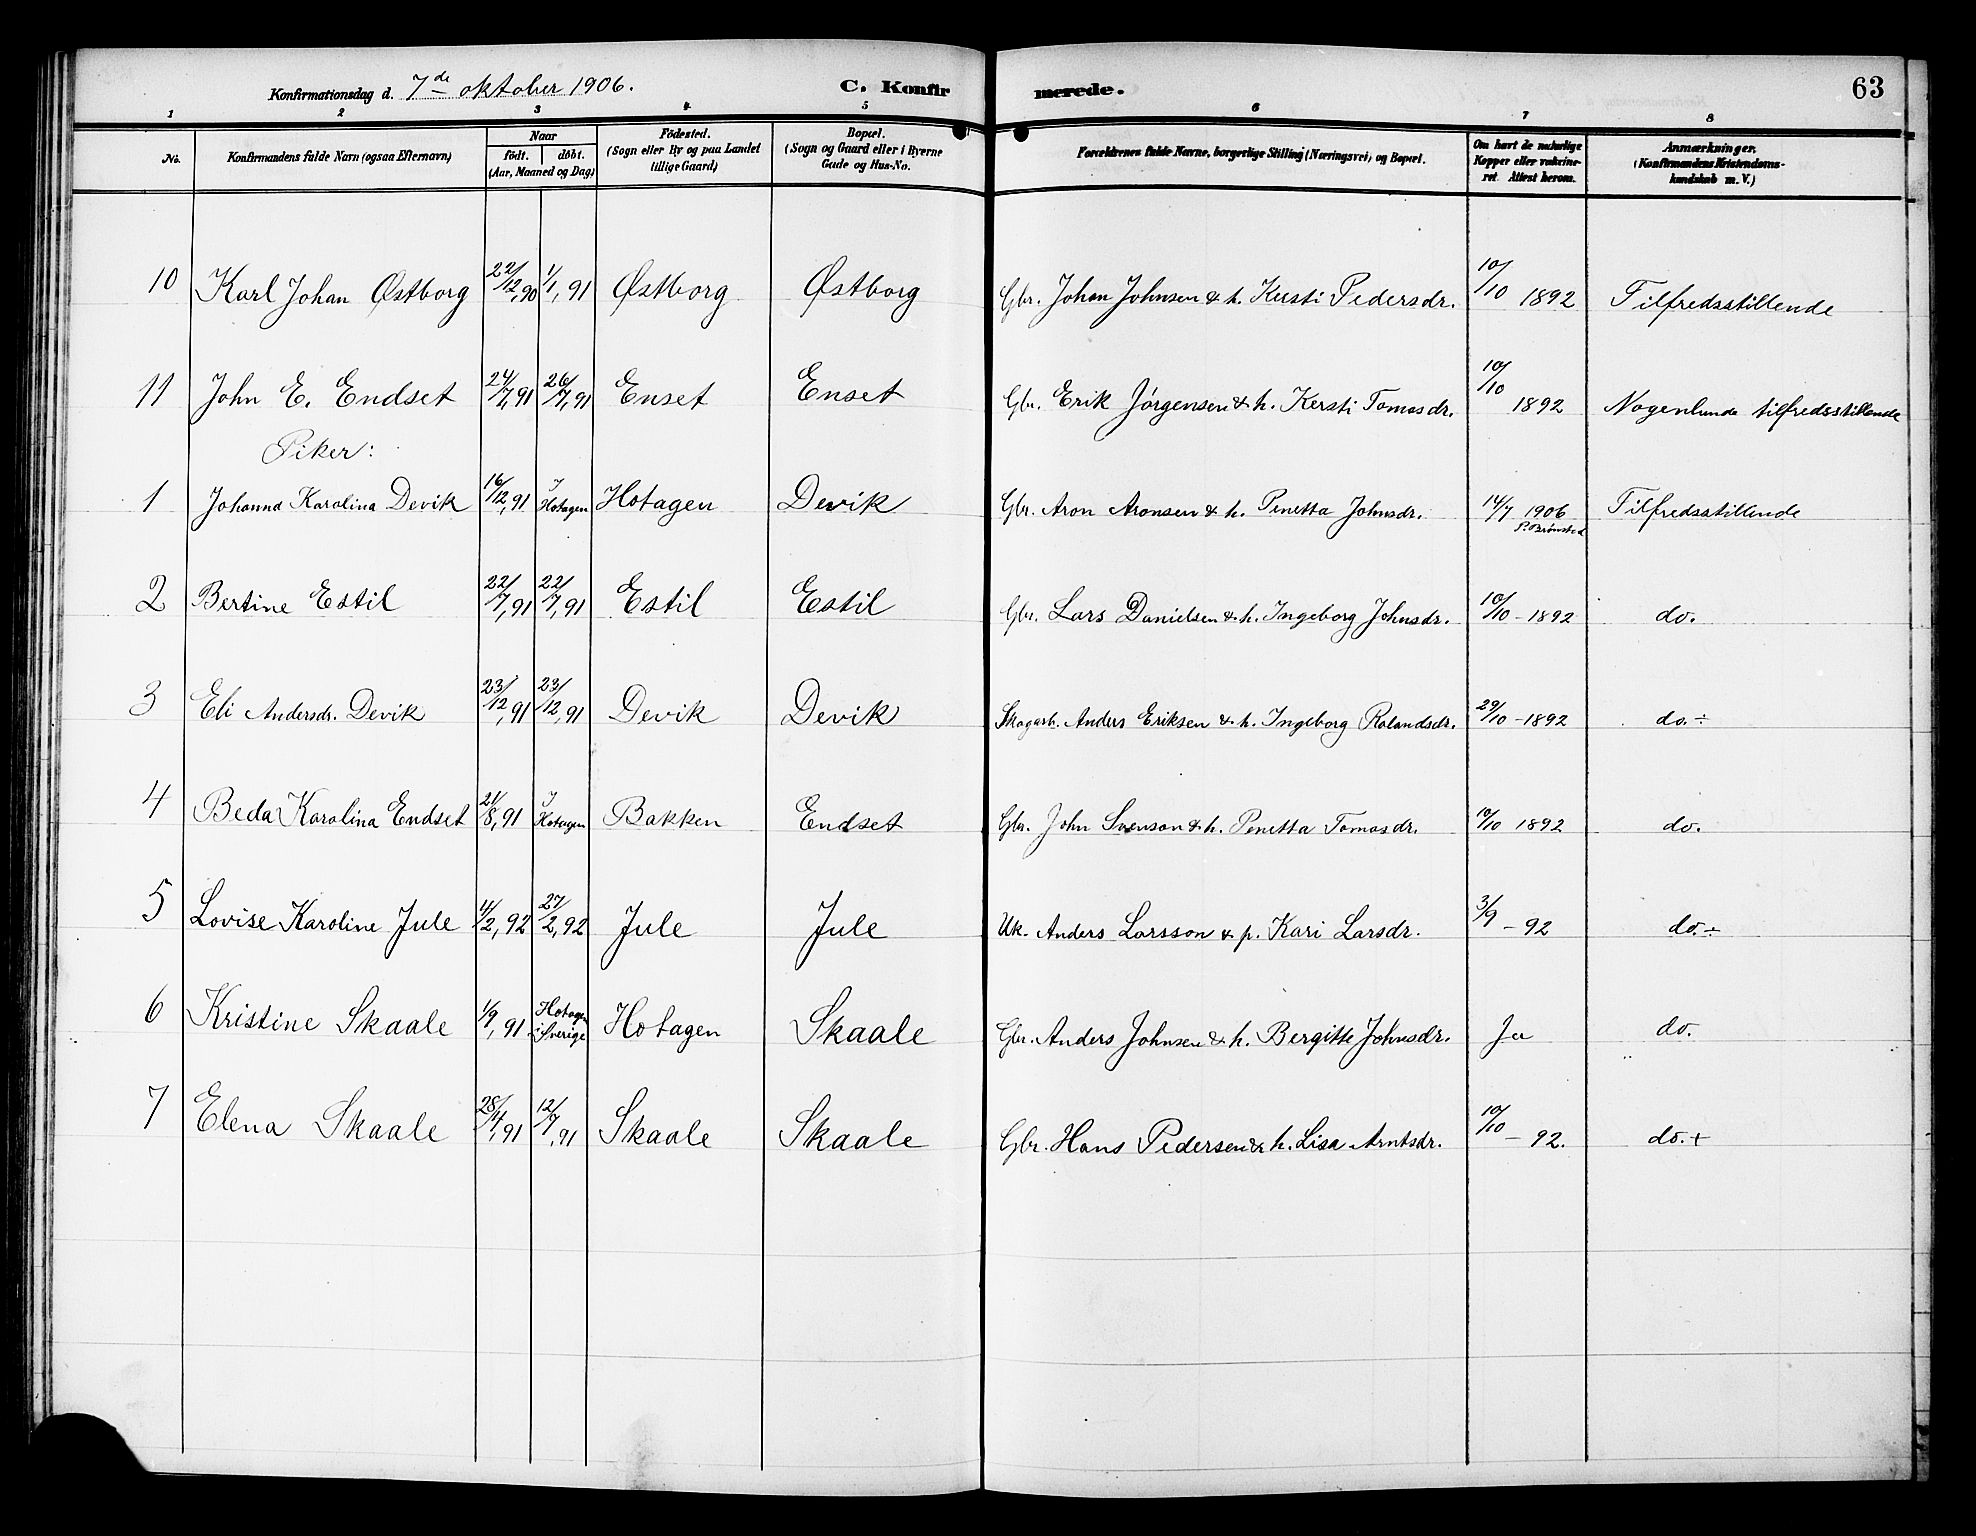 Konfirmationsdag d. 7de oktober 1906. C. Konfirmerede. 63
1 2 3 4 5 6 7 8
No. Konfirmandens fulde Navn (ogsaa Efternavn) Naar født. døbt. (Aar, Maaned og Dag) Fødested. (Sogn eller By og paa Landet tillige Gaard) Bopæl. (Sogn og Gaard eller i Byerne Gade og Hus-No. Forældrenes fulde Navne, borgerlige Stilling (Næringsvei) og Bopæl. Om havt de naturlige Kopper eller vaccineret. Attest herom. Anmærkninger. (Konfirmandens Kristendomskundskab m. V.)
10 Karl Johan Østborg 22/12, 90 1/1, 91 Østborg Østborg Gbr. Johan Johnsen & h. Kersti Pedersdr. 10/10 1892 Tilfredsstillende
11 John E. Endset 24/7, 91 26/7, 91 Enset Enset Gbr. Erik Jørgensen & h. Kersti Tomasdr. 10/10 1892 Nogenlunde tilfredsstillende
Piker:
1 Johanna Karolina Devik 16/12, 91 I Hotagen Hotagen Devik Gbr. Aron Aronsen & h. Penetta Johnsdr. 14/7 1906 P. Brønsted Tilfredsstillende
2 Bertine Estil 22/7, 91 22/7, 91 Estil Estil Gbr. Lars Danielsen & h. Ingeborg Johnsdr. 10/10 - 1892 do.
3 Eli Andersdr. Devik 23/12, 91 23/12, 91 Devik Devik Skogarb. Anders Eriksen & h. Ingeborg Rolandsdr. 29/10 - 1892 do. ÷
4 Beda Karolina Endset 21/8, 91 I Hotagen Bakken Endset Gbr. John Svenson & h. Penetta Tomasdr. 10/10 1892 do.
5 Lovise Karoline Jule 11/2, 92 27/2, 92 Jule Jule Uk. Anders Larsson & p. Kari Larsdr. 3/9 - 92 do. ÷
6 Kristine Skaale 1/9, 91 Hotagen i Sverige Hotagen Skaale Gbr. Anders Johnsen & h. Bergitte Johnsdr. Ja do.
7 Elena Skaale 28/4, 91 12/7, 91 Skaale Skaale Gbr. Hans Pedersen & h. Lisa Arntsdr. 10/10 - 92. do. +